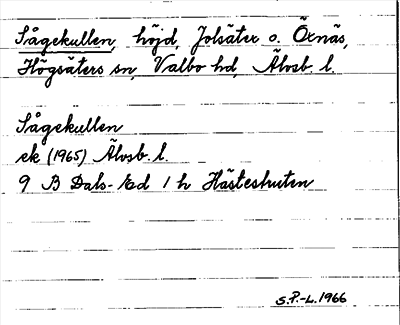 Sågekullen, höjd, Jolsäter o. Öxnäs,
Högsäters sn, Valbo hd, Älvsb. l.
Sågekullen
ek (1965) Älvsb. l.
9 B Dals-Ed 1 h Hästeskruten
S.P.-L. 1966